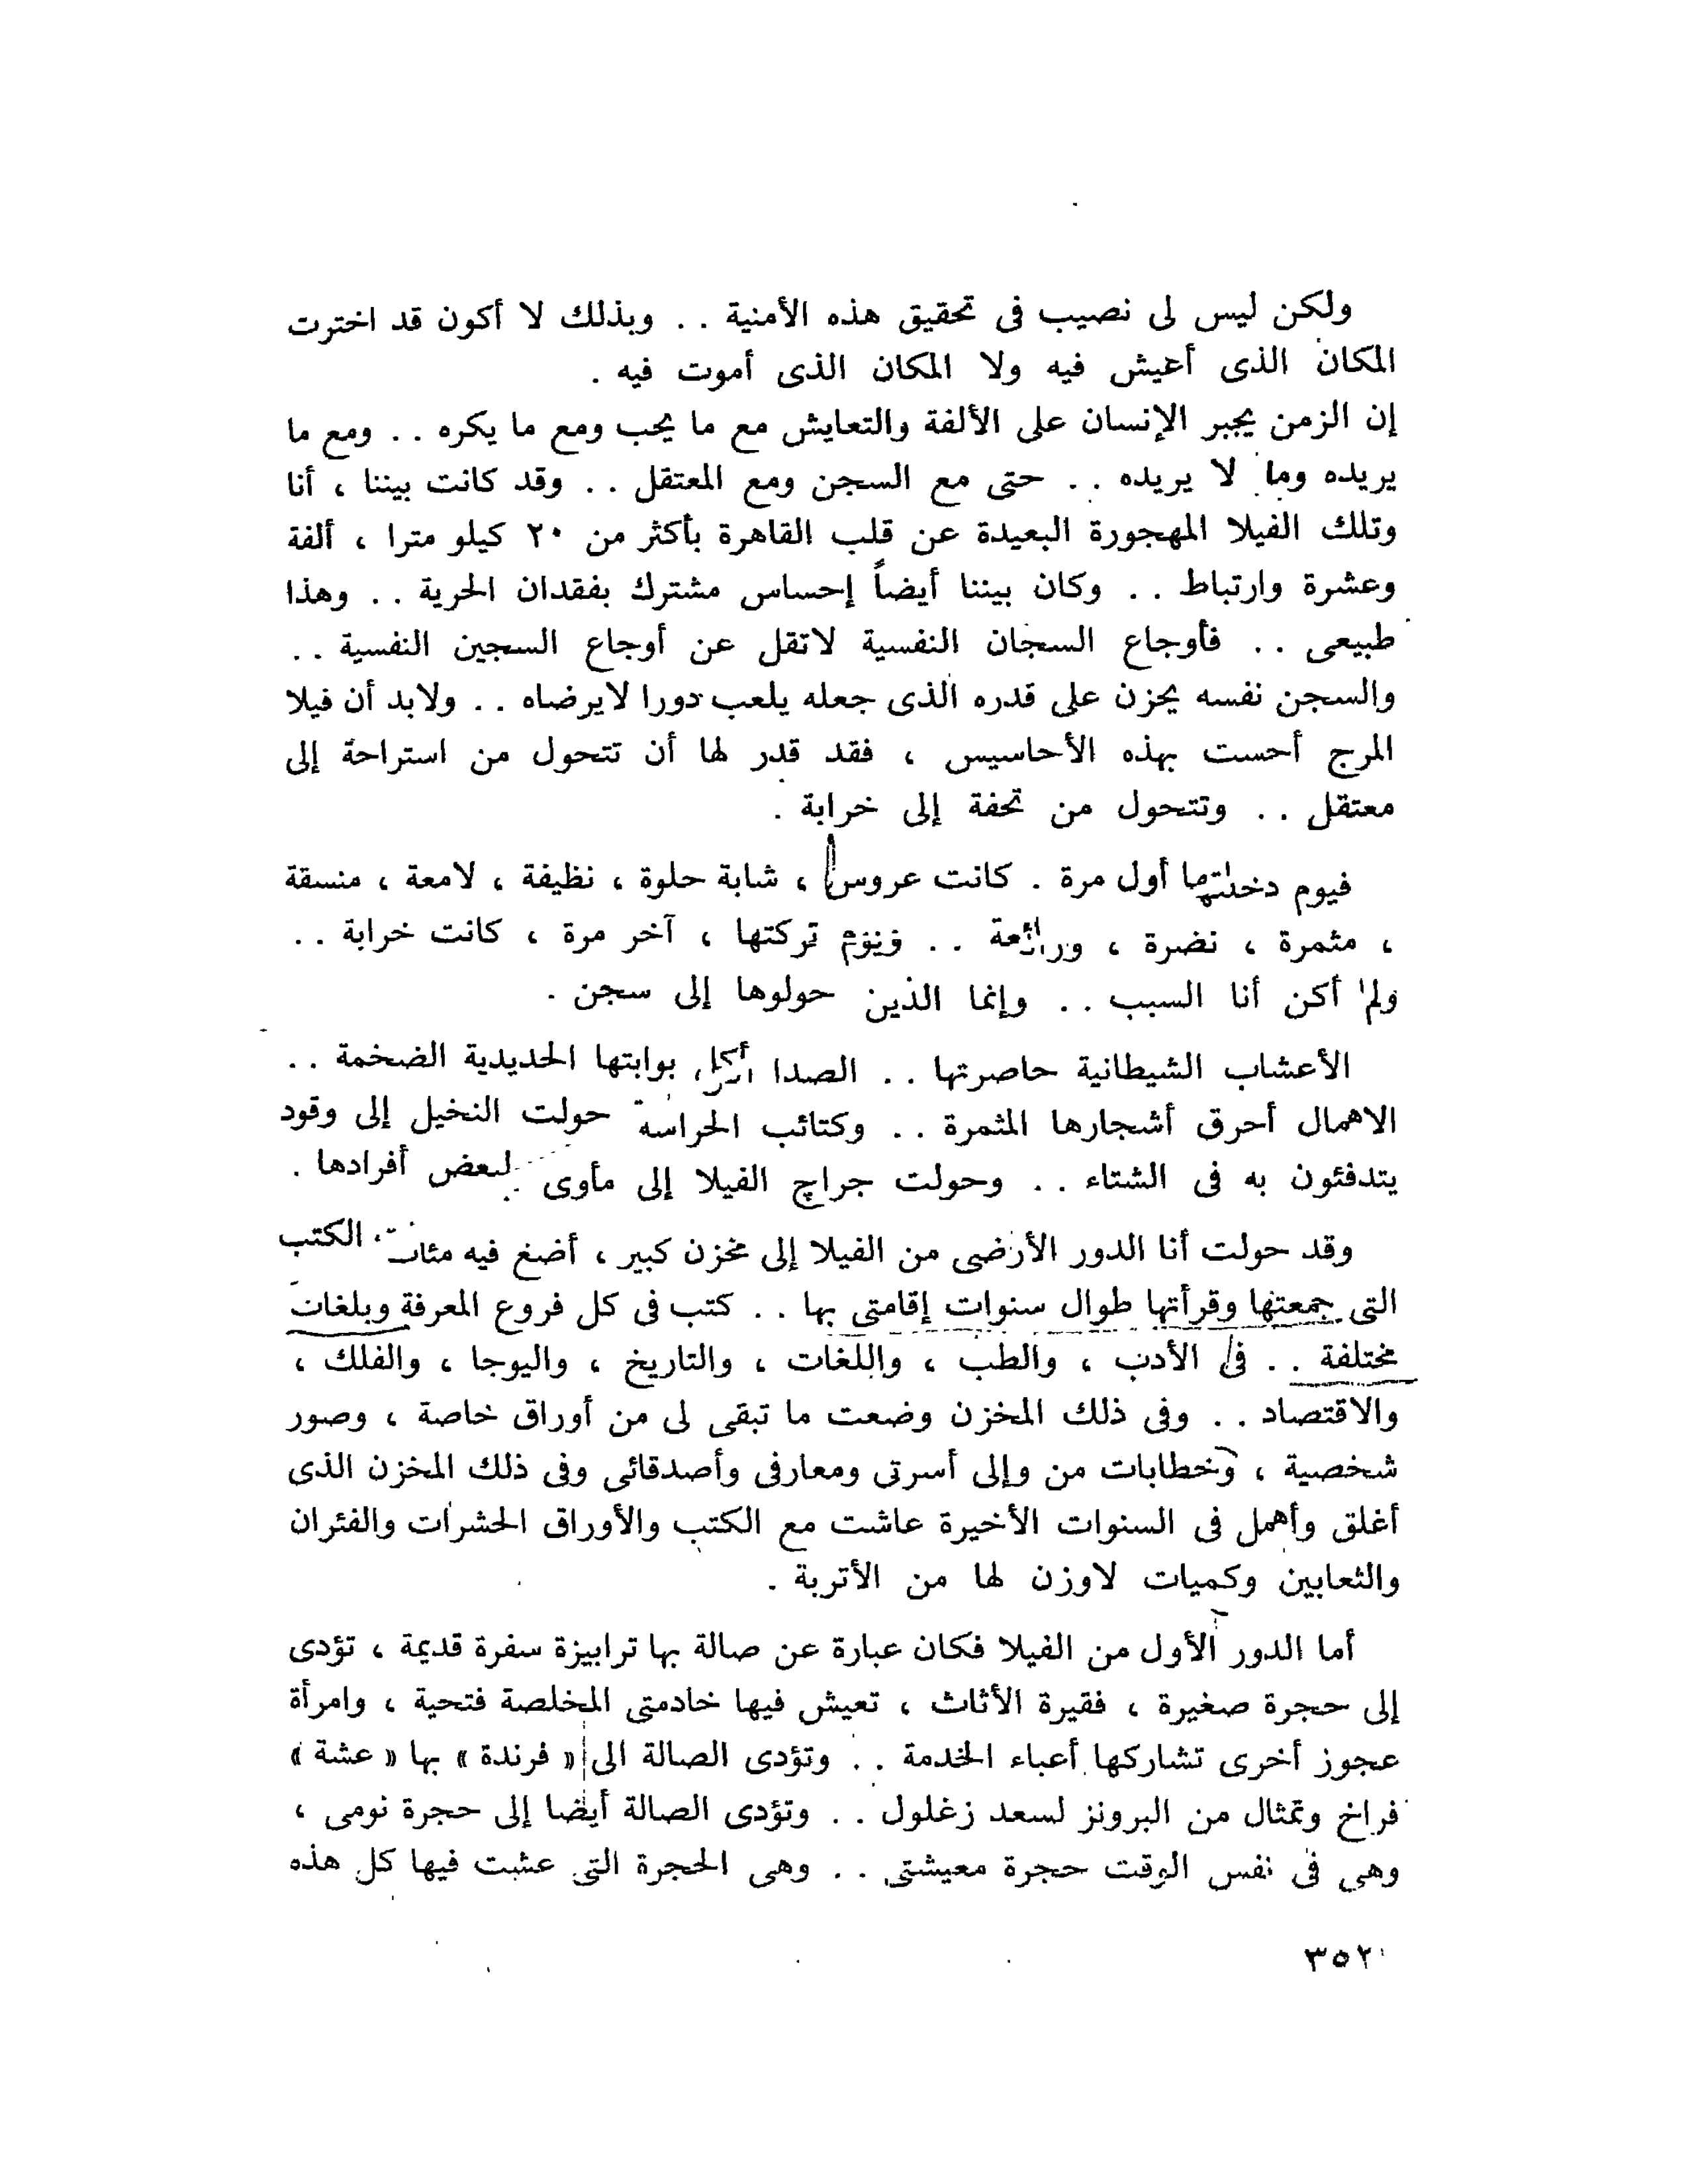 ولكن ليس لى نصيب فى تحقيق هذه الأمنية . . وبذلك لا أكون قد اخترت
المكان الذى أعيش فيه ولا المكان الذى أموت فيه .
إن الزمن يجبر الإنسان على الألفة والتعايش مع ما يحب ومع ما يكره . . ومع ما
يريده وما لا يريده . . حتى مع السجن ومع المعتقل . . وقد كانت بيننا ، أنا
وتلك الفيلا المهجورة البعيدة عن قلب القاهرة بأكثر من ٢٠ كيلو مترا ، ألفة
وعشرة وارتباط . . وكان بيننا أيضاً إحساس مشترك بفقدان الحرية . . وهذا
طبيعى . . فأوجاع السجان النفسية لاتقل عن أوجاع السجين النفسية . .
والسجن نفسه يحزن على قدره الذى جعله يلعب دورا لايرضاه . . ولابد أن فيلا
المرج أحست بهذه الأحاسيس ، فقد قدر لها أن تتحول من استراحة إلى
معتقل . . وتتحول من تحفة إلى خرابة .
فيوم دخلتها أول مرة . كانت عروسا ، شابة حلوة ، نظيفة ، لامعة ، منسقة
، مثمرة ، نضرة ، ورائعة . . ويوم تركتها ، آخر مرة ، كانت خرابة . .
ولم أكن أنا السبب . . وإنما الذين حولوها إلى سجن .
الأعشاب الشيطانية حاصرتها . . الصدا أكل بوابتها الحديدية الضخمة . .
الاهمال أحرق أشجارها المثمرة . . وكتائب الحراسة حولت النخيل إلى وقود
يتدفئون به فى الشتاء . . وحولت جراج الفيلا إلى مأوى لبعض أفرادها .
وقد حولت أنا الدور الأرضى من الفيلا إلى مخزن كبير ، أضغ فيه مئات الكتب
التى جمعتها وقرأتها طوال سنوات إقامتى بها . . كتب فى كل فروع المعرفة وبلغات
مختلفة . . فى الأدب ، والطب ، واللغات ، والتاريخ ، واليوجا ، والفلك ،
والاقتصاد . . وفى ذلك المخزن وضعت ما تبقى لى من أوراق خاصة ، وصور
شخصية ، وخطابات من وإلى أسرتى ومعارفى وأصدقائى وفى ذلك المخزن الذى
أغلق وأهمل فى السنوات الأخيرة عاشت مع الكتب والأوراق الحشرات والفئران
والثعابين وكميات لاوزن لها من الأتربة .
أما الدور الأول من الفيلا فكان عبارة عن صالة بها ترابيزة سفرة قديمة ، تؤدى
إلى حجرة صغيرة ، فقيرة الأثاث ، تعيش فيها خادمتى المخلصة فتحية ، وامرأة
عجوز أخرى تشاركها أعباء الخدمة . . وتؤدى الصالة الى « فرندة » بها « عشة »
فراخ وتمثال من البرونز لسعد زغلول . . وتؤدى الصالة أيضا إلى حجرة نومى ،
وهى فى نفس الوقت حجرة معيشتى . . وهى الحجرة التى عشت فيها كل هذه
٣٥٢